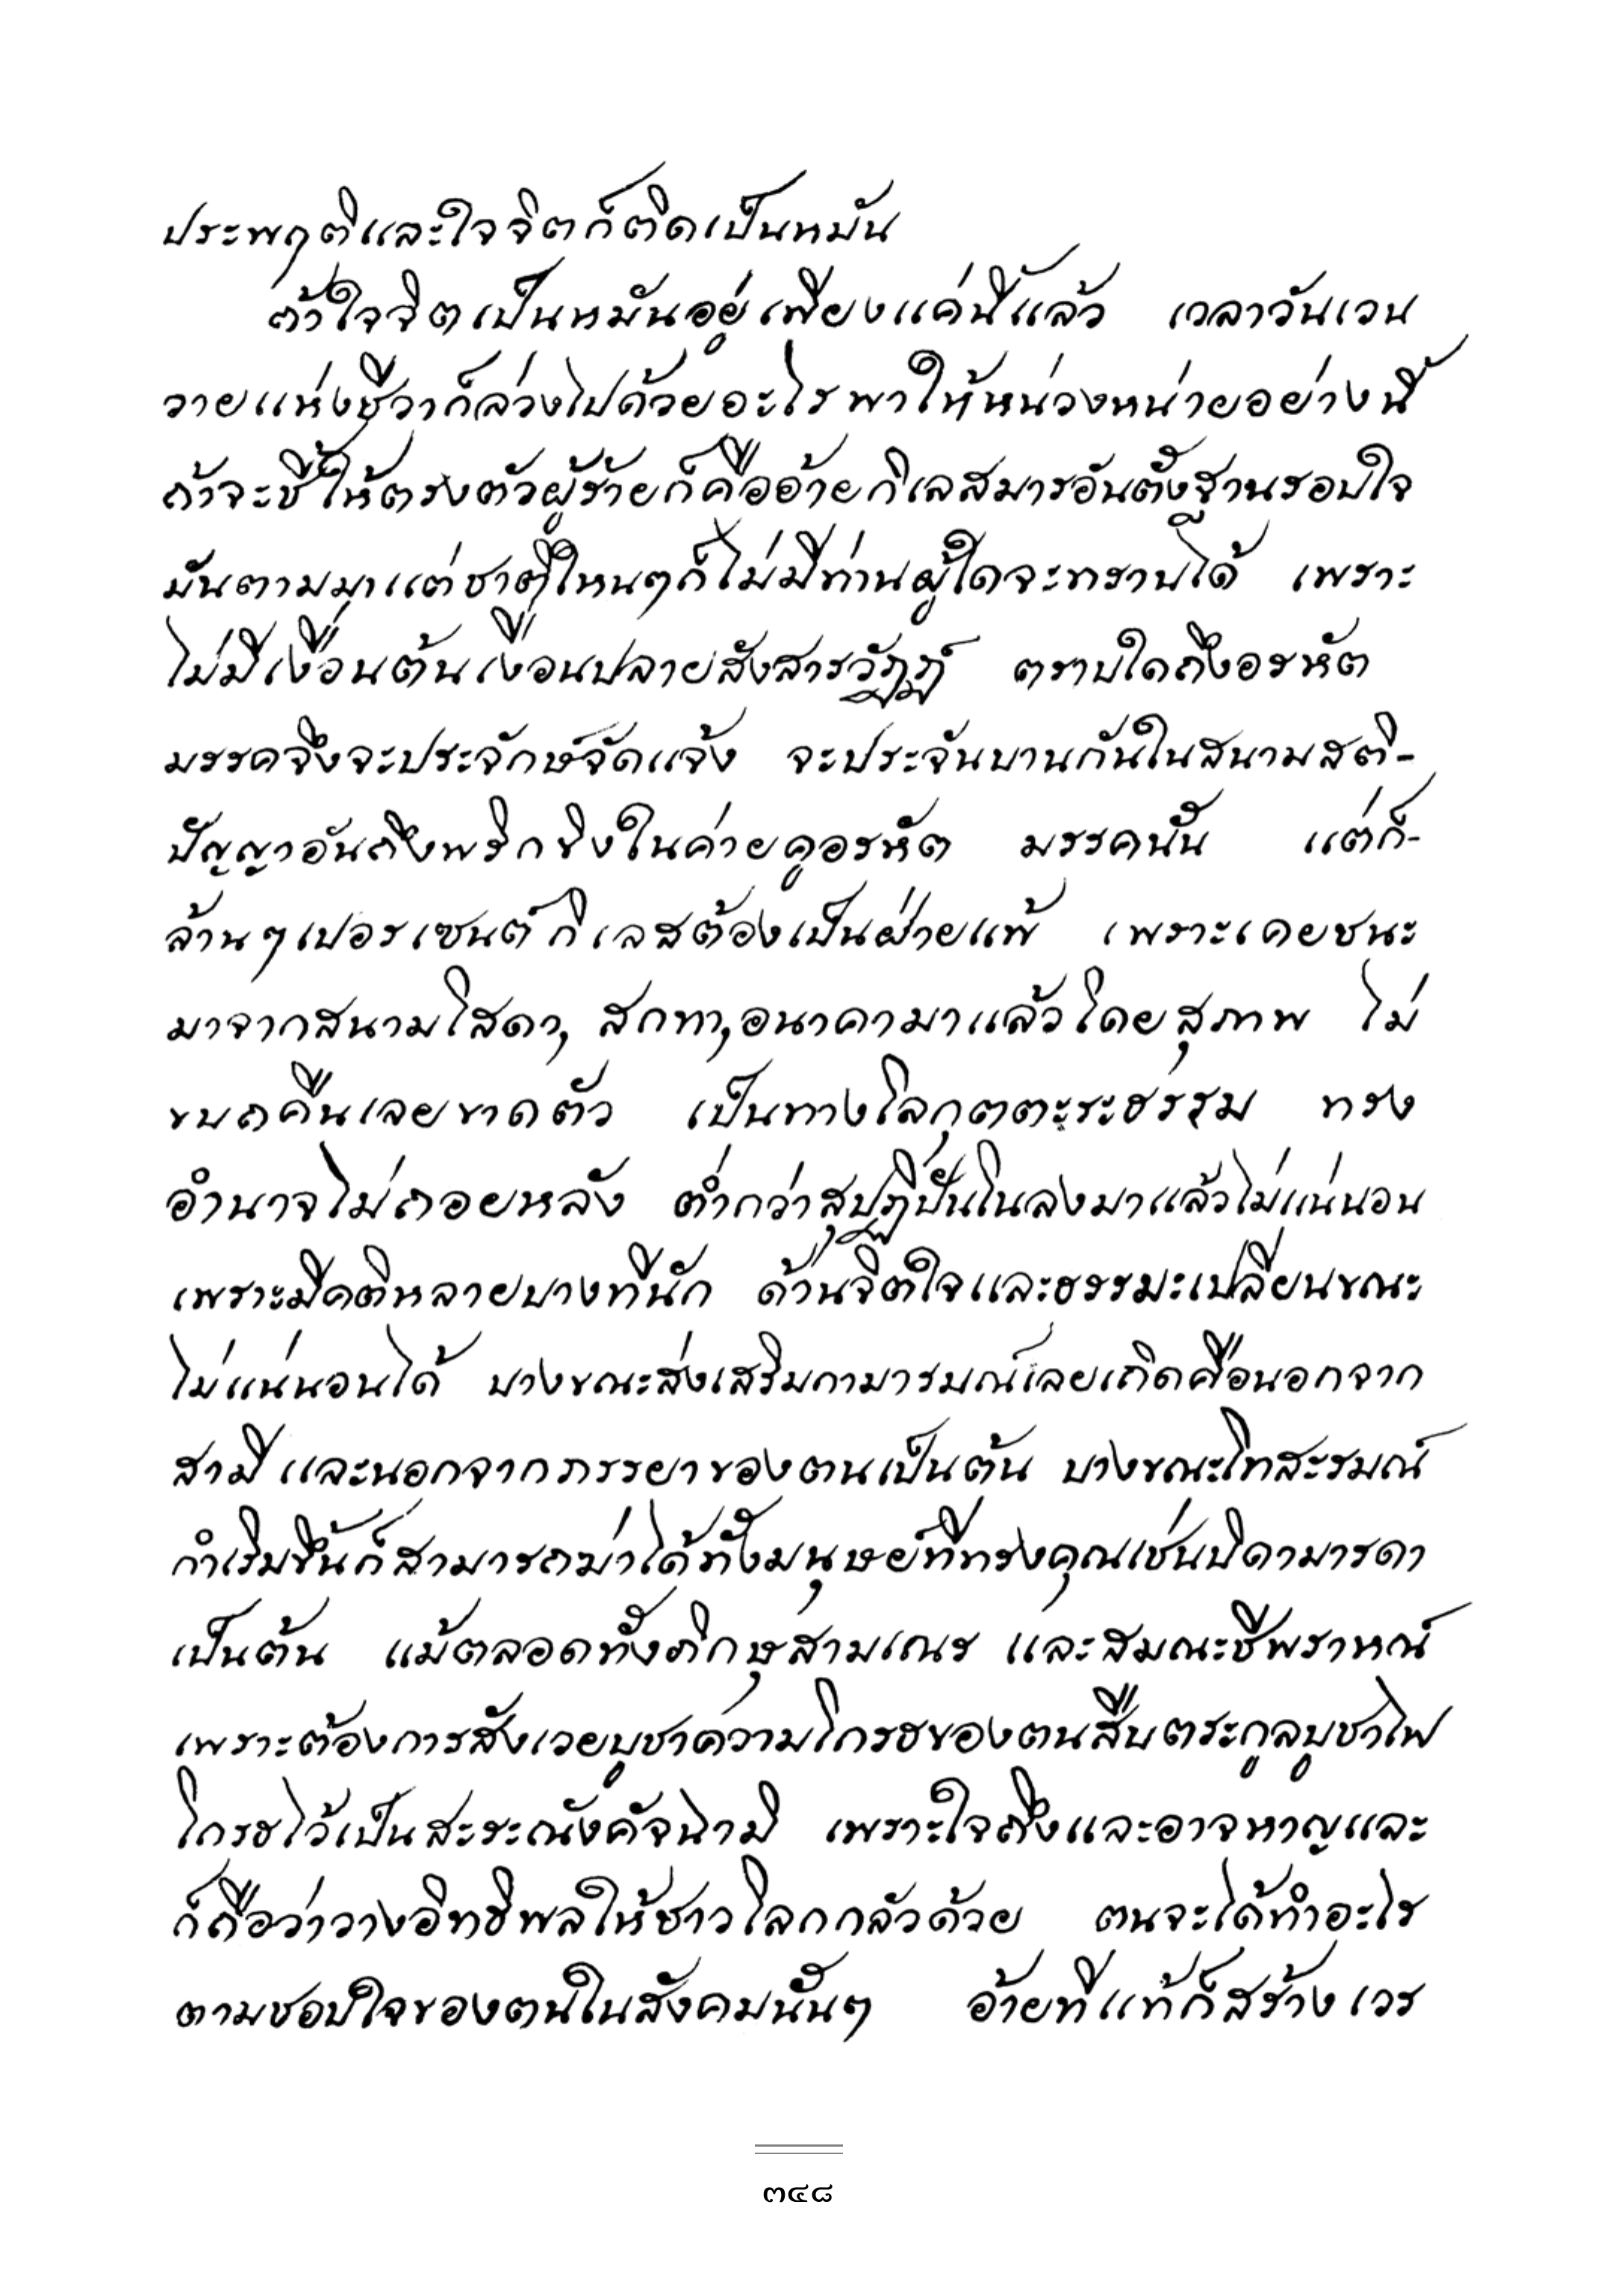 ประพฤติและใจจิตก็ติดเป็นหมัน
ถ้าใจจิตเป็นหมันอยู่เพียงแค่นี้แล้ว เวลาวันเวน
วายแห่งชีวาก็ล่วงไปด้วยอะไรพาให้หน่วงหน่ายอย่างนี้
ถ้าจะชี้ให้ตรงตัวผู้ร้ายก็คืออ้ายกิเลสมารอันตั้งฐานรอบใจ
มันตามมาแต่ชาติใหนๆก็ไม่มีท่านผู้ใดจะทราบได้ เพราะ
ไม่มีเงื่อนต้นเงื่อนปลายสังสารวัฏฏ์ ตราบใดถึงอรหัต
มรรคจึงจะประจักษ์จัดแจ้ง จะประจันบานกันในสนามสติ-
ปัญญาอันถึงพริกขิงในค่ายคูอรหัต มรรคนั้น แต่ก็-
ล้านๆเปอรเซนต์กิเลสต้องเป็นฝ่ายแพ้ เพราะเคยชนะ
มาจากสนามโสดา, สกทา,อนาคามาแล้วโดยสุภาพ ไม่
ขบถคืนเลยขาดตัว เป็นทางโลกุตตะระธรรม ทรง
อำนาจไม่ถอยหลัง ต่ำกว่าสุปฏิปันโนลงมาแล้วไม่แน่นอน
เพราะมีคติหลายบางทีนัก ด้านจิตใจและธรรมะเปลี่ยนขณะ
ไม่แน่นอนได้ บางขณะส่งเสริมกามารมณ์เลยเถิดคือนอกจาก
สามี และนอกจากภรรยาของตนเป็นต้น บางขณะโทสะรมณ์
กำเริบขึ้นก็สามารถฆ่าได้ทั้งมนุษย์ที่ทรงคุณเช่นบิดามารดา
เป็นต้น แม้ตลอดทั้งภิกษุสามเณร และสมณะชีพราหณ์
เพราะต้องการสังเวยบูชาความโกรธของตนสืบตระกูลบูชาไฟ
โกรธไว้เป็นสะระณังคัจฉามิ เพราะใจถึงและอาจหาญและ
ก็ถือว่าวางอิทธิพลให้ชาวโลกกลัวด้วย ตนจะได้ทำอะไร
ตามชอบใจของตนในสังคมนั้นๆ อ้ายที่แท้ก็สร้างเวร
๓๔๘